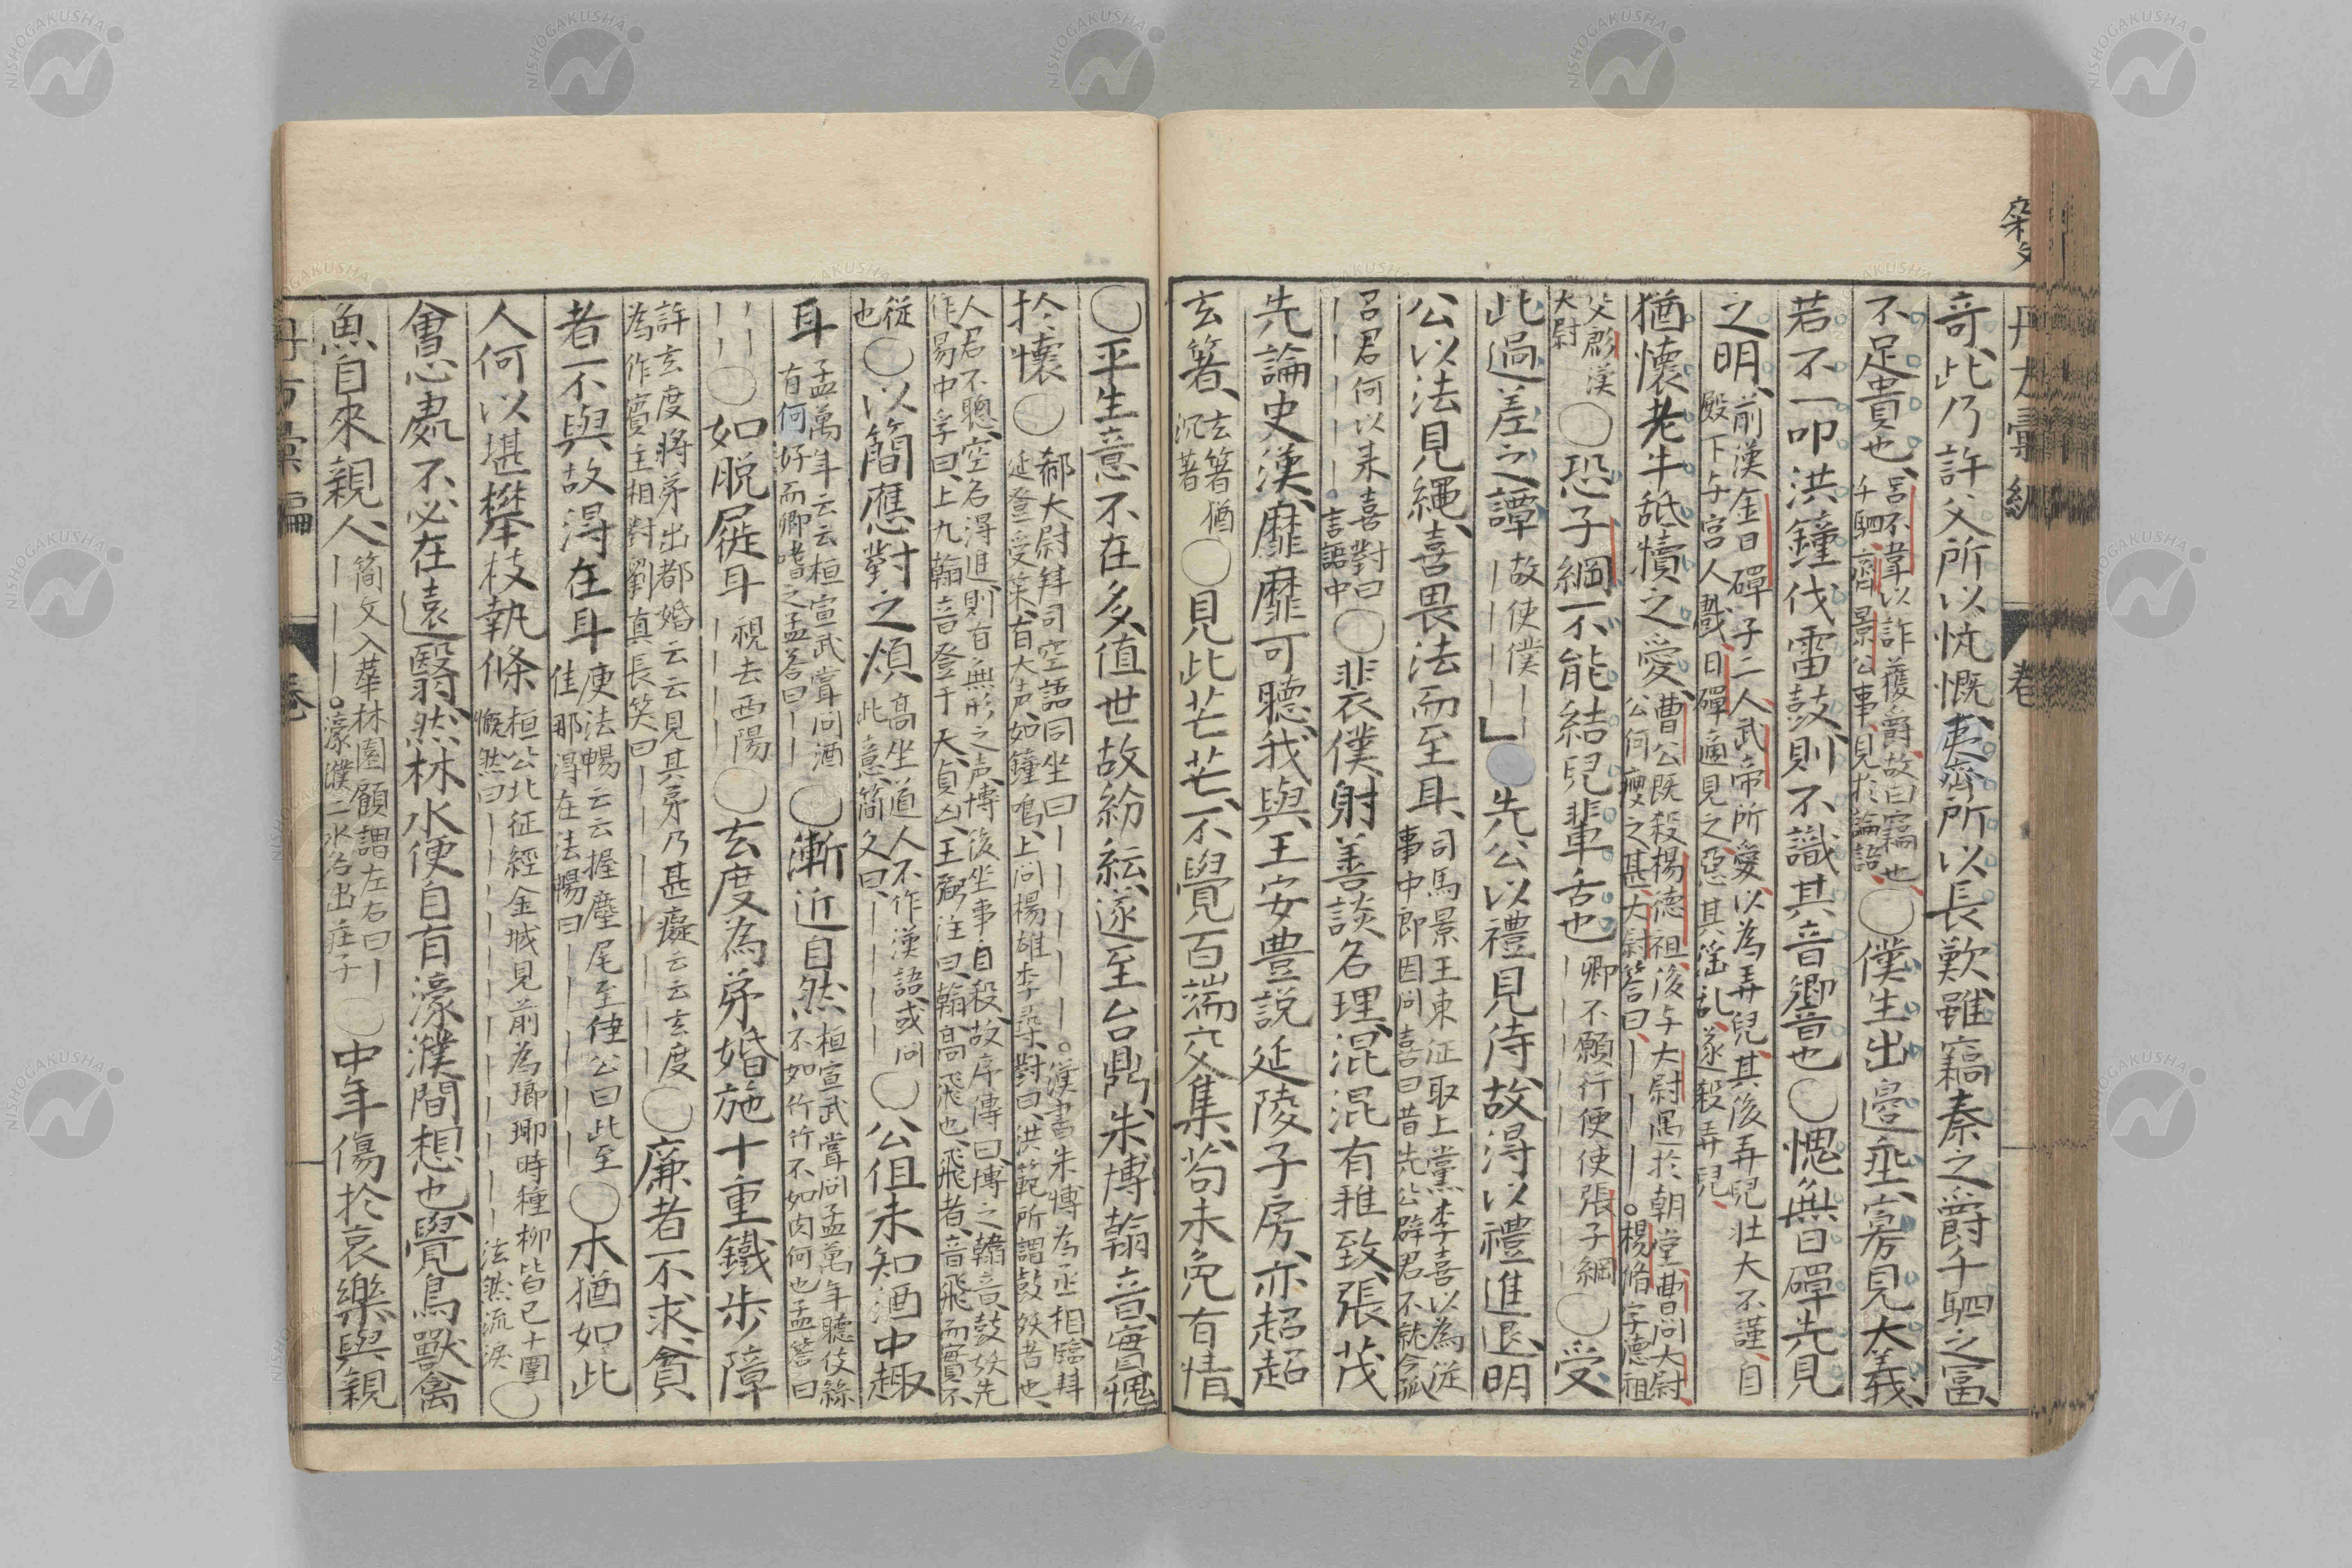 奇、此乃許父所以忼慨、夷齊所以長歎雖竊秦之爵千駟之冨、
不足貴也、呂不韋以詐獲爵故曰竊也、
千駟齊景公事、見於論語、〇僕生出邊垂、寡見大義、
若不一叩洪鐘伐雷鼓則不識其音響也〇愧無日磾先見
之明、前漢金日磾子二人武帝所愛、以為弄兒、其後弄兒壮大不謹、自
殿下与宮人戯、日磾適見之、惡其淫乱、遂殺弄兒、
猶懷老牛舐犢之愛、曹公既殺楊德祖、後与大尉遇於朝堂、曹問大尉、
公何瘦之甚、大尉答曰、―――――。楊脩字德祖
父彪漢
大尉〇恐子綱不能結兒輩舌也 卿不願行便使張子綱〇受
此過差之譚 故使僕―
―――――」先公以禮見待故得以禮進退、明
公以法見繩、喜畏法而至耳、司馬景王東征取上黨李喜以為從
事中郎因問喜曰昔先公辟君不就今孤
召君何以来喜對曰
―――――。言語中〇裴僕射善談名理、混混有雅致、張茂
先論史漢、靡靡可聽、我與王安豊説延陵子房、亦超超
玄箸、玄箸猶
沉著〇見此芒芒、不覺百端交集、苟未免有情、
〇平生意不在多、值世故紛紜、遂至台鼎、朱博翰音、實愧
於懷〇郗大尉拜司空語同坐曰―――――。漢書朱博為丞相、臨拜
延登受策、有大声、如鐘鳴、上問楊雄李尋、對曰、洪範所謂鼓妖者也、
人君不聰、空名得進、則有無形之声、博後坐事自殺、故序傳曰、博之翰音、鼓妖先
作、易中孚曰、上九翰音登于天、貞凶、王弼注曰、翰高飛也、飛者、音飛而實不
從
也〇以簡應對之煩 高坐道人不作漢語或問
此意、簡文曰、――――〇公但未知酒中趣
耳 孟萬年云云桓宣武嘗问酒
有何好而卿嗜之孟答曰――〇漸近自然 桓宣武嘗问孟萬年聽伎絲
不如竹竹不如肉何也孟荅曰
――――〇如脱屣耳 視去西陽
――――〇玄度為弟婚施十重鐵步障
許玄度將弟出都婚云云見其弟乃甚癡云云玄度
為作賓主相對劉真長笑曰――――〇廉者不求、貪
者不與、故得在耳 庾法暢云云握麈尾至佳公曰此至
佳那得在法暢曰――――〇木猶如此
人何以堪攀枝執條 桓公北征經金城見前為瑯琊時種柳皆已十圍
慨然曰――――――泫然流淚〇
會心處不必在遠、翳然林水便自有濠濮間想也、覺鳥獸禽
魚自來親人、簡文入華林園顧謂左右曰―
――――。濠濮二水名出莊子〇中年傷於哀樂、與親